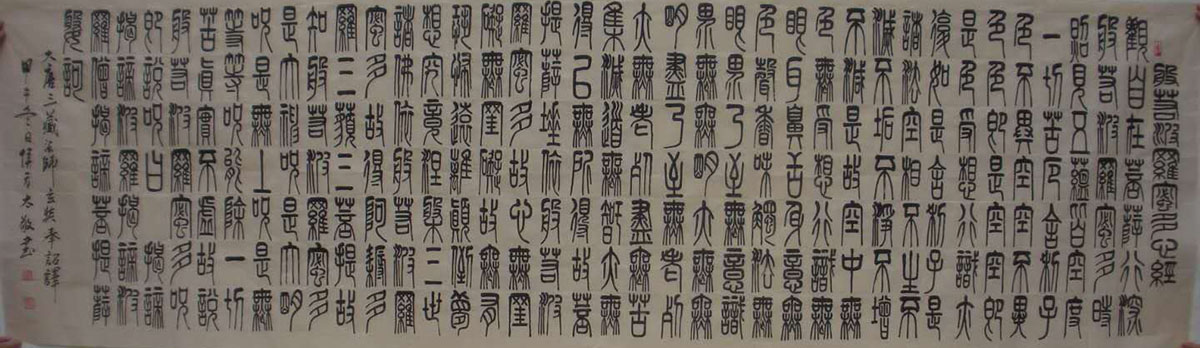 般若波羅蜜多心經
觀自在菩薩行深
般若波羅蜜多時
照見五蘊皆空度
一切苦厄舍利子
色不異空空不異
色色即是空空即
是色受想行識亦
復如是舍利子是
諸法空相不生不
滅不垢不淨不增
不減是故空中無
色無受想行識無
眼耳鼻舌身意無
色聲香味觸法無
眼界乃至無意識
界無無明亦無無
明盡乃至無老死
亦無老死盡無苦
集滅道無智亦無
得以無所得故菩
提薩埵依般若波
羅蜜多故心無罣
礙無罣礙故無有
恐怖遠離顛倒夢
想究竟涅槃三世
諸佛依般若波羅
蜜多故得阿耨多
羅三藐三菩提故
知般若波羅蜜多
是大神咒是大明
咒是無上咒是無
等等咒能除一切
苦真實不虛故說
般若波羅蜜多咒
即說咒曰揭諦
揭諦波羅揭諦波
羅僧揭諦菩提薩
婆訶
大唐三藏法師玄奘奉詔譯
甲午冬日